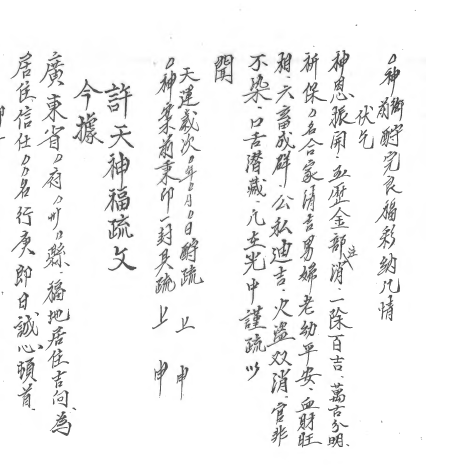 神前酧完良福彩納凡情
伏乞
神恩振開血歷金部消一除百吉萬古分明
祈保名合家清吉男婦老幼平安血財旺
相六畜成群公私迪吉火盜双消官非
不染口舌潜藏凡在光中謹疏以
聞
天運歲次年月日酧疏 上申
神案前秉印一封具疏 上申
許天神福疏文
今據
廣東省府州縣福地居住吉向為
居住信任名行庚即日誠心頓首